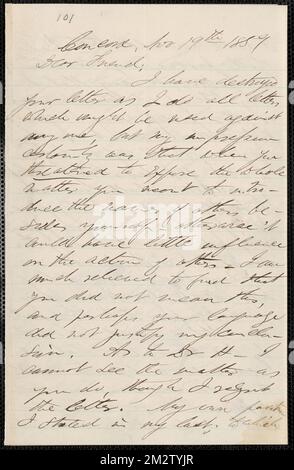 101
Concord, Nov 19th 1859
Dear Friend;
I have destroyed
your letter as I do all letters
which might be used against
any one, but my impression
certainly was, that when you
threatened to oppose the whole
matter you meant to intro-
duce the names of others be-
sides yourself; otherwise it
could have little influence
on the action of others — I am
much relieved to find that
you did not mean this,
and perhaps your language
did not justify my conclu-
sion. As to Dr H — I
cannot see the matter as
you do, though I regret
the letter. My own
I stated in my last, to which
alamy
Image ID: 2WTYJR
www.alamy.com